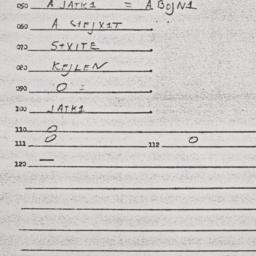 050 A JATK1 = A BOJN1
060 A
070 S+XITE
080 KEJLEN
090 O =
100 JATK1
110 O
111 O 112 O
120 —